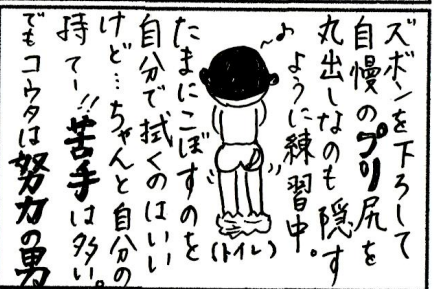 ズボンを下ろして
自慢のプリ尻を
丸出しなのも隠す
ように練習中。
(トイレ)
たまにこぼすのを
自分で拭くのはいい
けど…ちゃんと自分の
持てー!!苦手は多い。
でもコウタは努力の男